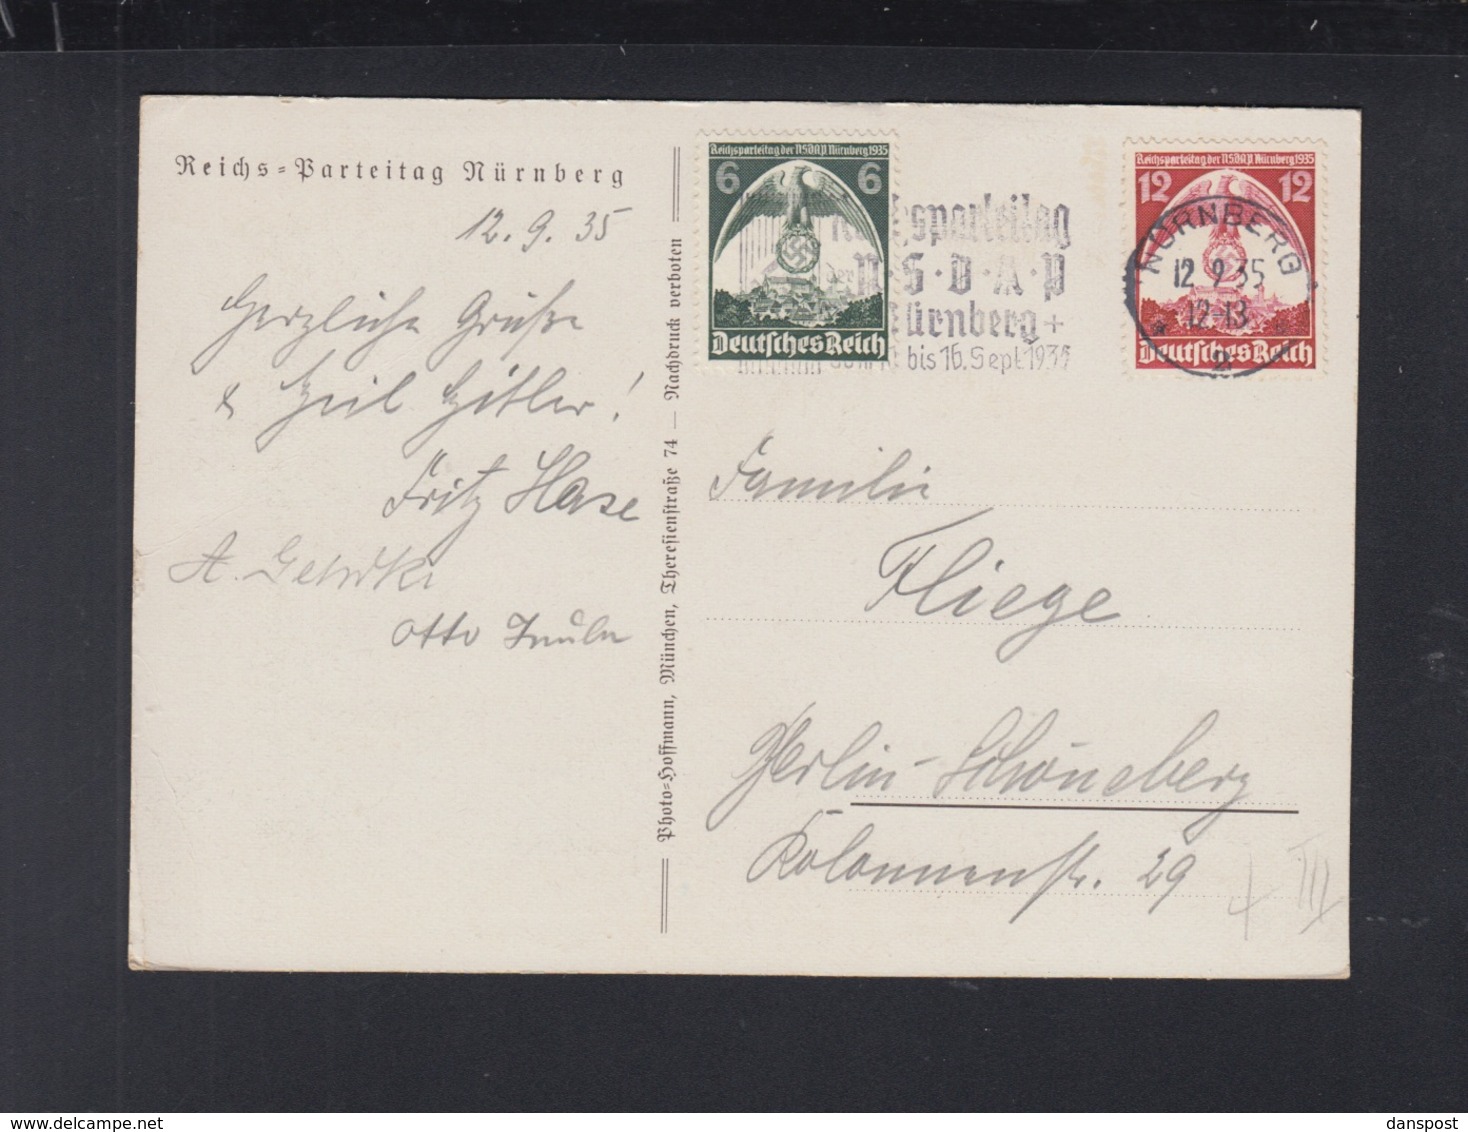 Reichs-Parteitag Nürnberg
12.9.35
Herzliche Grüße
& Heil Hitler!
Fritz Hase
A.
Otto
Photo-Hoffmann, München, Theresienstraße 74 — Nachdruck verboten
Reichsparteitag der NSDAP Nürnberg 1935
6 6
Deutsches Reich
Reichsparteitag
der N·S·D·A·P
Nürnberg +
bis 16. Sept. 1935
Reichsparteitag der NSDAP Nürnberg 1935
12 12
Deutsches Reich
NÜRNBERG
12.9.35
12-13
* 2 *
Familie
Fliege
Berlin-Schöneberg
Kolonnenstr. 29
III
www.delcampe.net
danspost